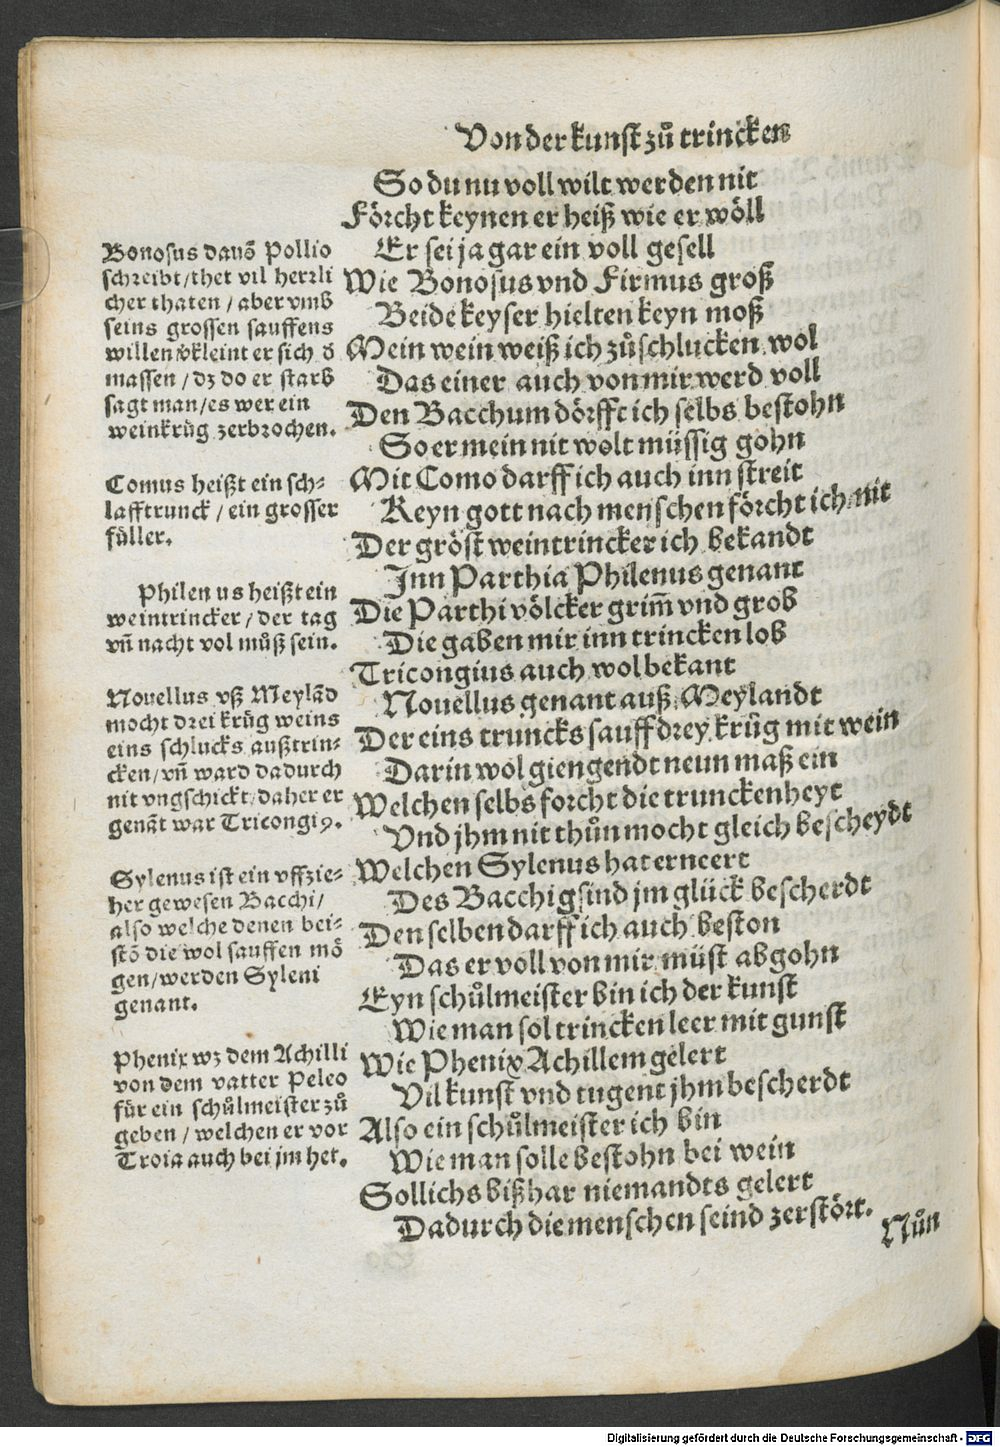 Von der kunst zů trincken
So du nu voll wilt werden nit
Förcht keynen er heiß wie er wöll
Er sei ja gar ein voll gesell
Wie Bonosus vnd Firmus groß
Beide keyser hielten keyn moß
Mein wein weiß ich zů schlucken wol
Das einer auch von mir werd voll
Den Bacchum dörfft ich selbs bestohn
So er mein nit wolt müssig gohn
Mit Como darff ich auch inn streit
Keyn gott nach menschen förcht ich nit
Der gröst weintrincker ich bekandt
Inn Parthia Philenus genant
Die Parthi völcker grim̃ vnd grob
Die gaben mir inn trincken lob
Tricongius auch wol bekant
Nouellus genant auß Meylandt
Der eins truncks sauff drey krüg mit wein
Darin wol giengendt neun maß ein
Welchen selbs forcht die trunckenheyt
Vnd jhm nit thůn mocht gleich bescheydt
Welchen Sylenus hat erneert
Des Bacchi gsind jm glück bescherdt
Den selben darff ich auch beston
Das er voll von mir müst abgohn
Eyn schůlmeister bin ich der kunst
Wie man sol trincken leer mit gunst
Wie Phenix Achillem gelert
Vil kunst vnd tugent jhm bescherdt
Also ein schůlmeister ich bin
Wie man solle bestohn bei wein
Sollichs bißhar niemandts gelert
Dadurch die menschen seind zerstört.
Nůn
Bonosus dauõ Pollio
schreibt / thet vil herrli
cher thaten / aber vmb
seins grossen sauffens
willen vkleint er sich d
massen / dz do er starb
sagt man / es wer ein
weinkrüg zerbrochen.
Comus heißt ein sch-
lafftrunck / ein grosser
füller.
Philenus heißt ein
weintrincker / der tag
vñ nacht vol můß sein.
Nouellus vß Meylãd
mocht drei krüg weins
eins schlucks außtrin-
cken / vñ ward dadurch
nit vngschickt / daher er
genãt war Tricongiꝰ.
Sylenus ist ein vffzie-
her gewesen Bacchi /
also welche denen bei-
stõ die wol sauffen mõ
gen / werden Syleni
genant.
Phenix wz dem Achilli
von dem vatter Peleo
für ein schůlmeister zů
geben / welchen er vor
Troia auch bei jm het.
Digitalisierung gefördert durch die Deutsche Forschungsgemeinschaft - DFG